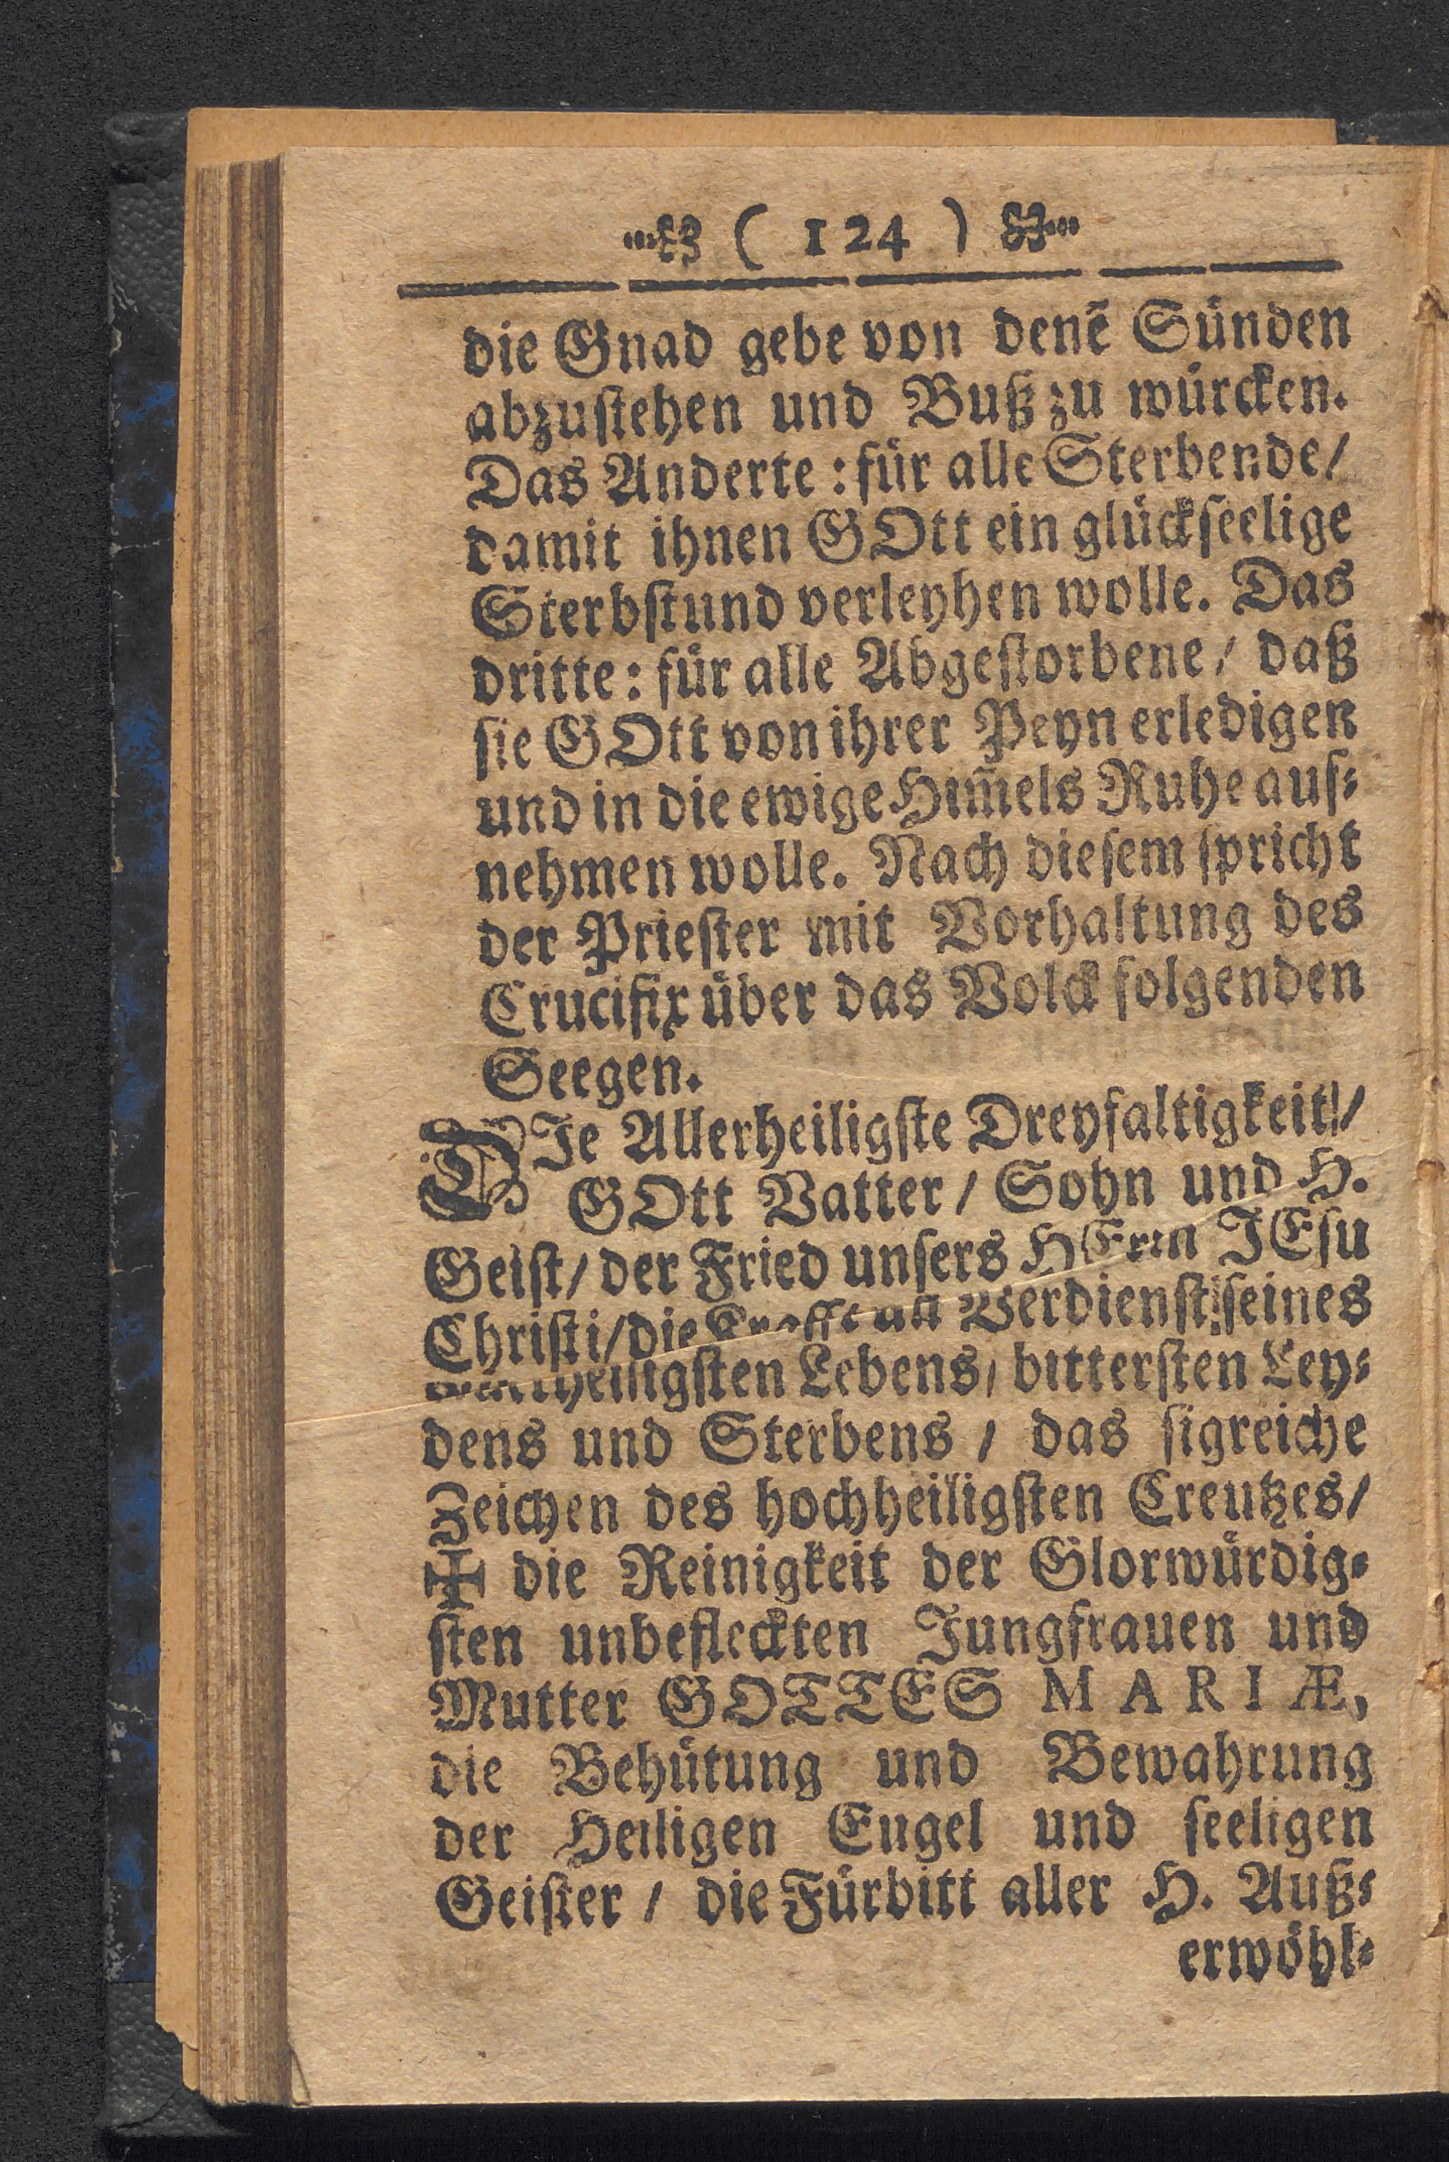 ( 124 )
die Gnad gebe von denẽ Sünden
abzustehen und Buß zu würcken.
Das Anderte: für alle Sterbende/
damit ihnen GOtt ein glückseelige
Sterbstund verleyhen wolle. Das
dritte: für alle Abgestorbene/ daß
sie GOtt von ihrer Peyn erledigen
und in die ewige Him̃els Ruhe auf-
nehmen wolle. Nach diesem spricht
der Priester mit Vorhaltung des
Crucifix über das Volck folgenden
Seegen.
DIe Allerheiligste Dreyfaltigkeit/
GOtt Vatter/ Sohn und H.
Geist/ der Fried unsers HErrn JEsu
Christi/ die Krafft Verdienst seines
Lebens/ bittersten Ley-
dens und Sterbens / das sigreiche
Zeichen des hochheiligsten Creutzes/
✠ die Reinigkeit der Glorwürdig-
sten unbefleckten Jungfrauen und
Mutter GOTTES MARIÆ,
die Behütung und Bewahrung
der Heiligen Engel und seeligen
Geister / die Fürbitt aller H. Auß-
erwöhl-